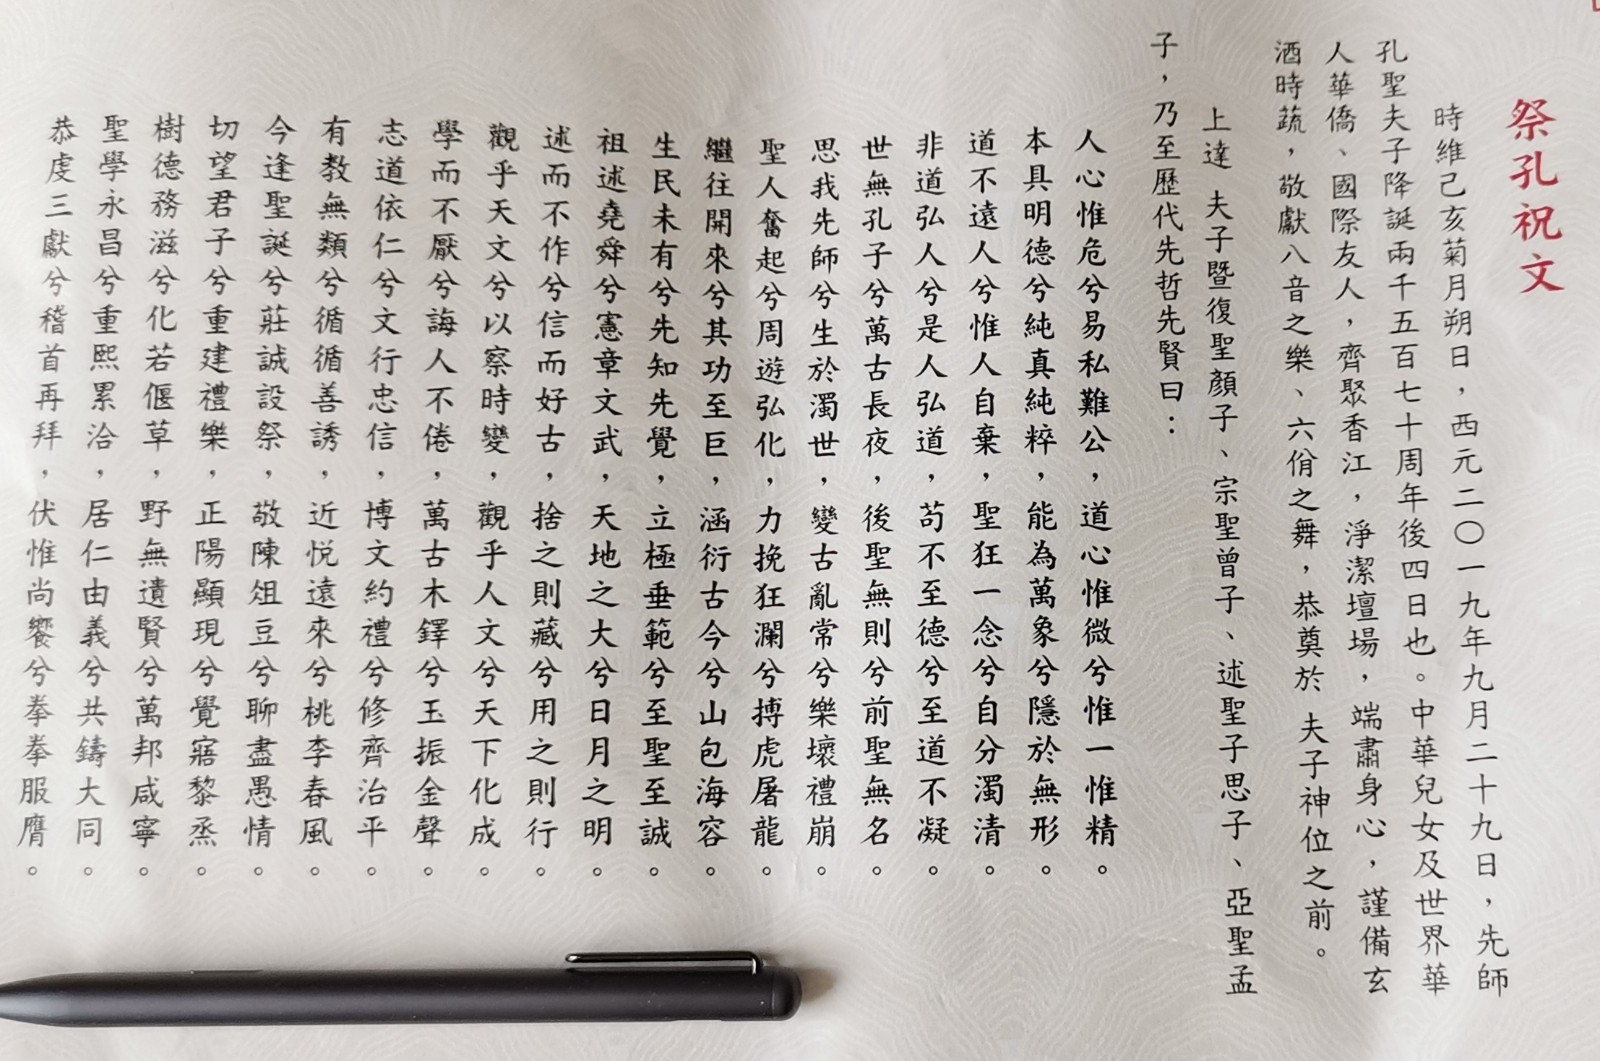 祭孔祝文
時維己亥菊月朔日，西元二〇一九年九月二十九日，先師
孔聖夫子降誕兩千五百七十周年後四日也。中華兒女及世界華
人華僑、國際友人，齊聚香江，淨潔壇場，端肅身心，謹備玄
酒時蔬，敬獻八音之樂、六佾之舞，恭奠於 夫子神位之前。
上達 夫子暨復聖顏子、宗聖曾子、述聖子思子、亞聖孟
子，乃至歷代先哲先賢曰：
人心惟危兮易私難公，道心惟微兮惟一惟精。
本具明德兮純真純粹，能為萬象兮隱於無形。
道不遠人兮惟人自棄，聖狂一念兮自分濁清。
非道弘人兮是人弘道，苟不至德兮至道不凝。
世無孔子兮萬古長夜，後聖無則兮前聖無名。
思我先師兮生於濁世，變古亂常兮樂壞禮崩。
聖人奮起兮周遊弘化，力挽狂瀾兮搏虎屠龍。
繼往開來兮其功至巨，涵衍古今兮山包海容。
生民未有兮先知先覺，立極垂範兮至聖至誠。
祖述堯舜兮憲章文武，天地之大兮日月之明。
述而不作兮信而好古，捨之則藏兮用之則行。
觀乎天文兮以察時變，觀乎人文兮天下化成。
學而不厭兮誨人不倦，萬古木鐸兮玉振金聲。
志道依仁兮文行忠信，博文約禮兮修齊治平。
有教無類兮循循善誘，近悅遠來兮桃李春風。
今逢聖誕兮莊誠設祭，敬陳俎豆兮聊盡愚情。
切望君子兮重建禮樂，正陽顯現兮覺寤黎烝。
樹德務滋兮化若偃草，野無遺賢兮萬邦咸寧。
聖學永昌兮重熙累洽，居仁由義兮共鑄大同。
恭虔三獻兮稽首再拜，伏惟尚饗兮拳拳服膺。